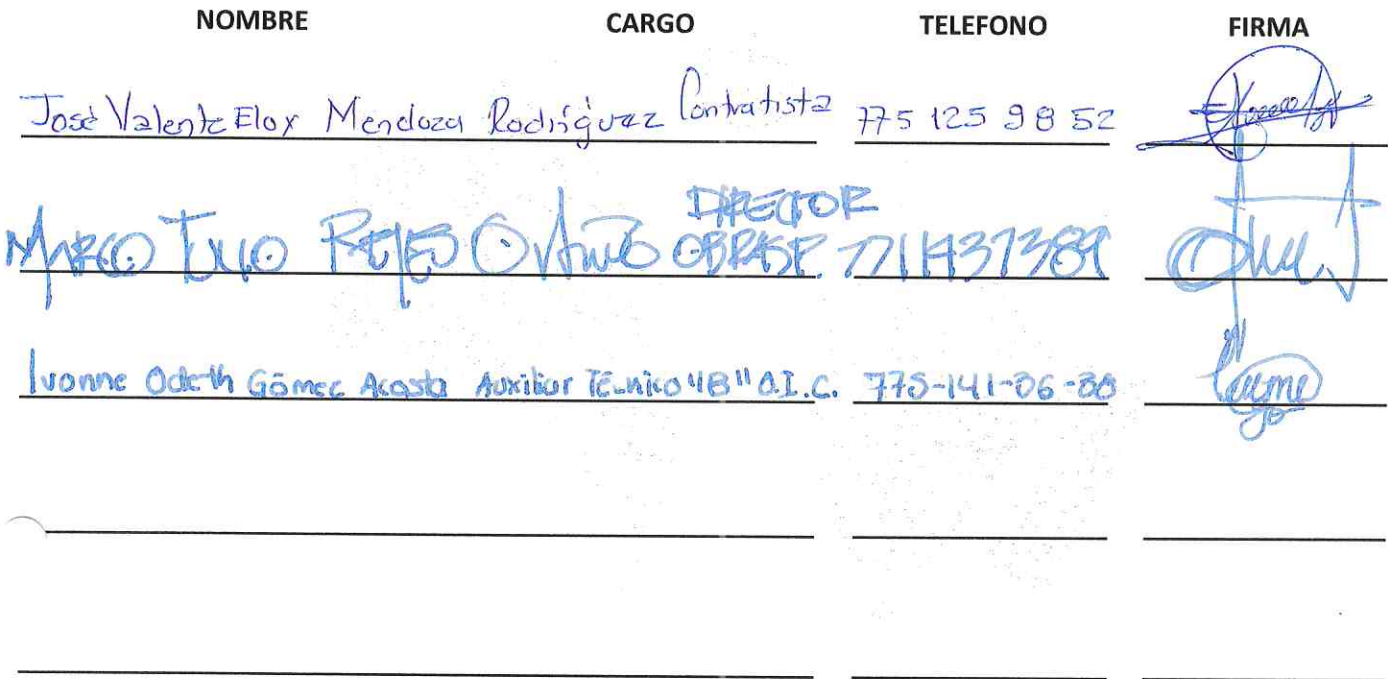 NOMBRE CARGO TELEFONO FIRMA
José Valente Elox Mendoza Rodríguez Contratista 775 125 98 52
DIRECTOR
MARCO TULIO REYES OBRAS P. 7711437389
Ivonne Odeth Gómez Acosta Auxiliar Técnico "B" O.I.C. 775-141-06-30